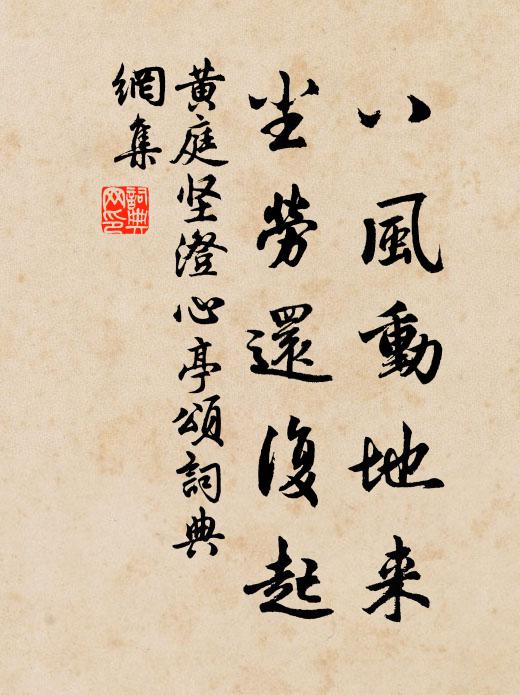 八風動地来
尘勞還復起
黄庭坚澄心亭頌詞典
網集
詞典網印